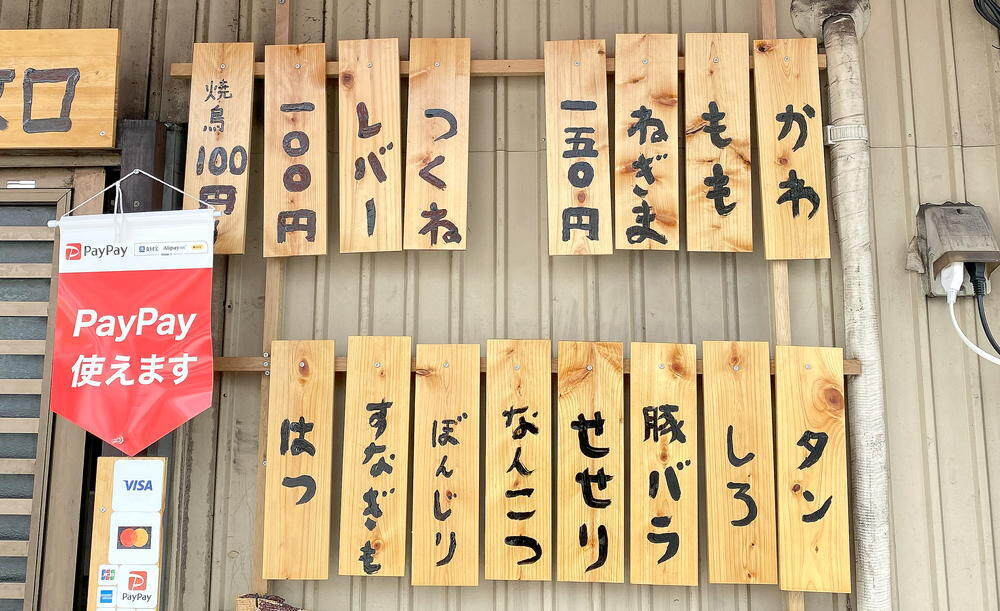 かわ
もも
ねぎま
一五〇円
つくね
レバー
一〇〇円
焼鳥
100
円
タン
しろ
豚バラ
せせり
なんこつ
ぼんじり
すなぎも
はつ
口
PayPay
Alipay
PayPay
使えます
VISA
JCB
PayPay